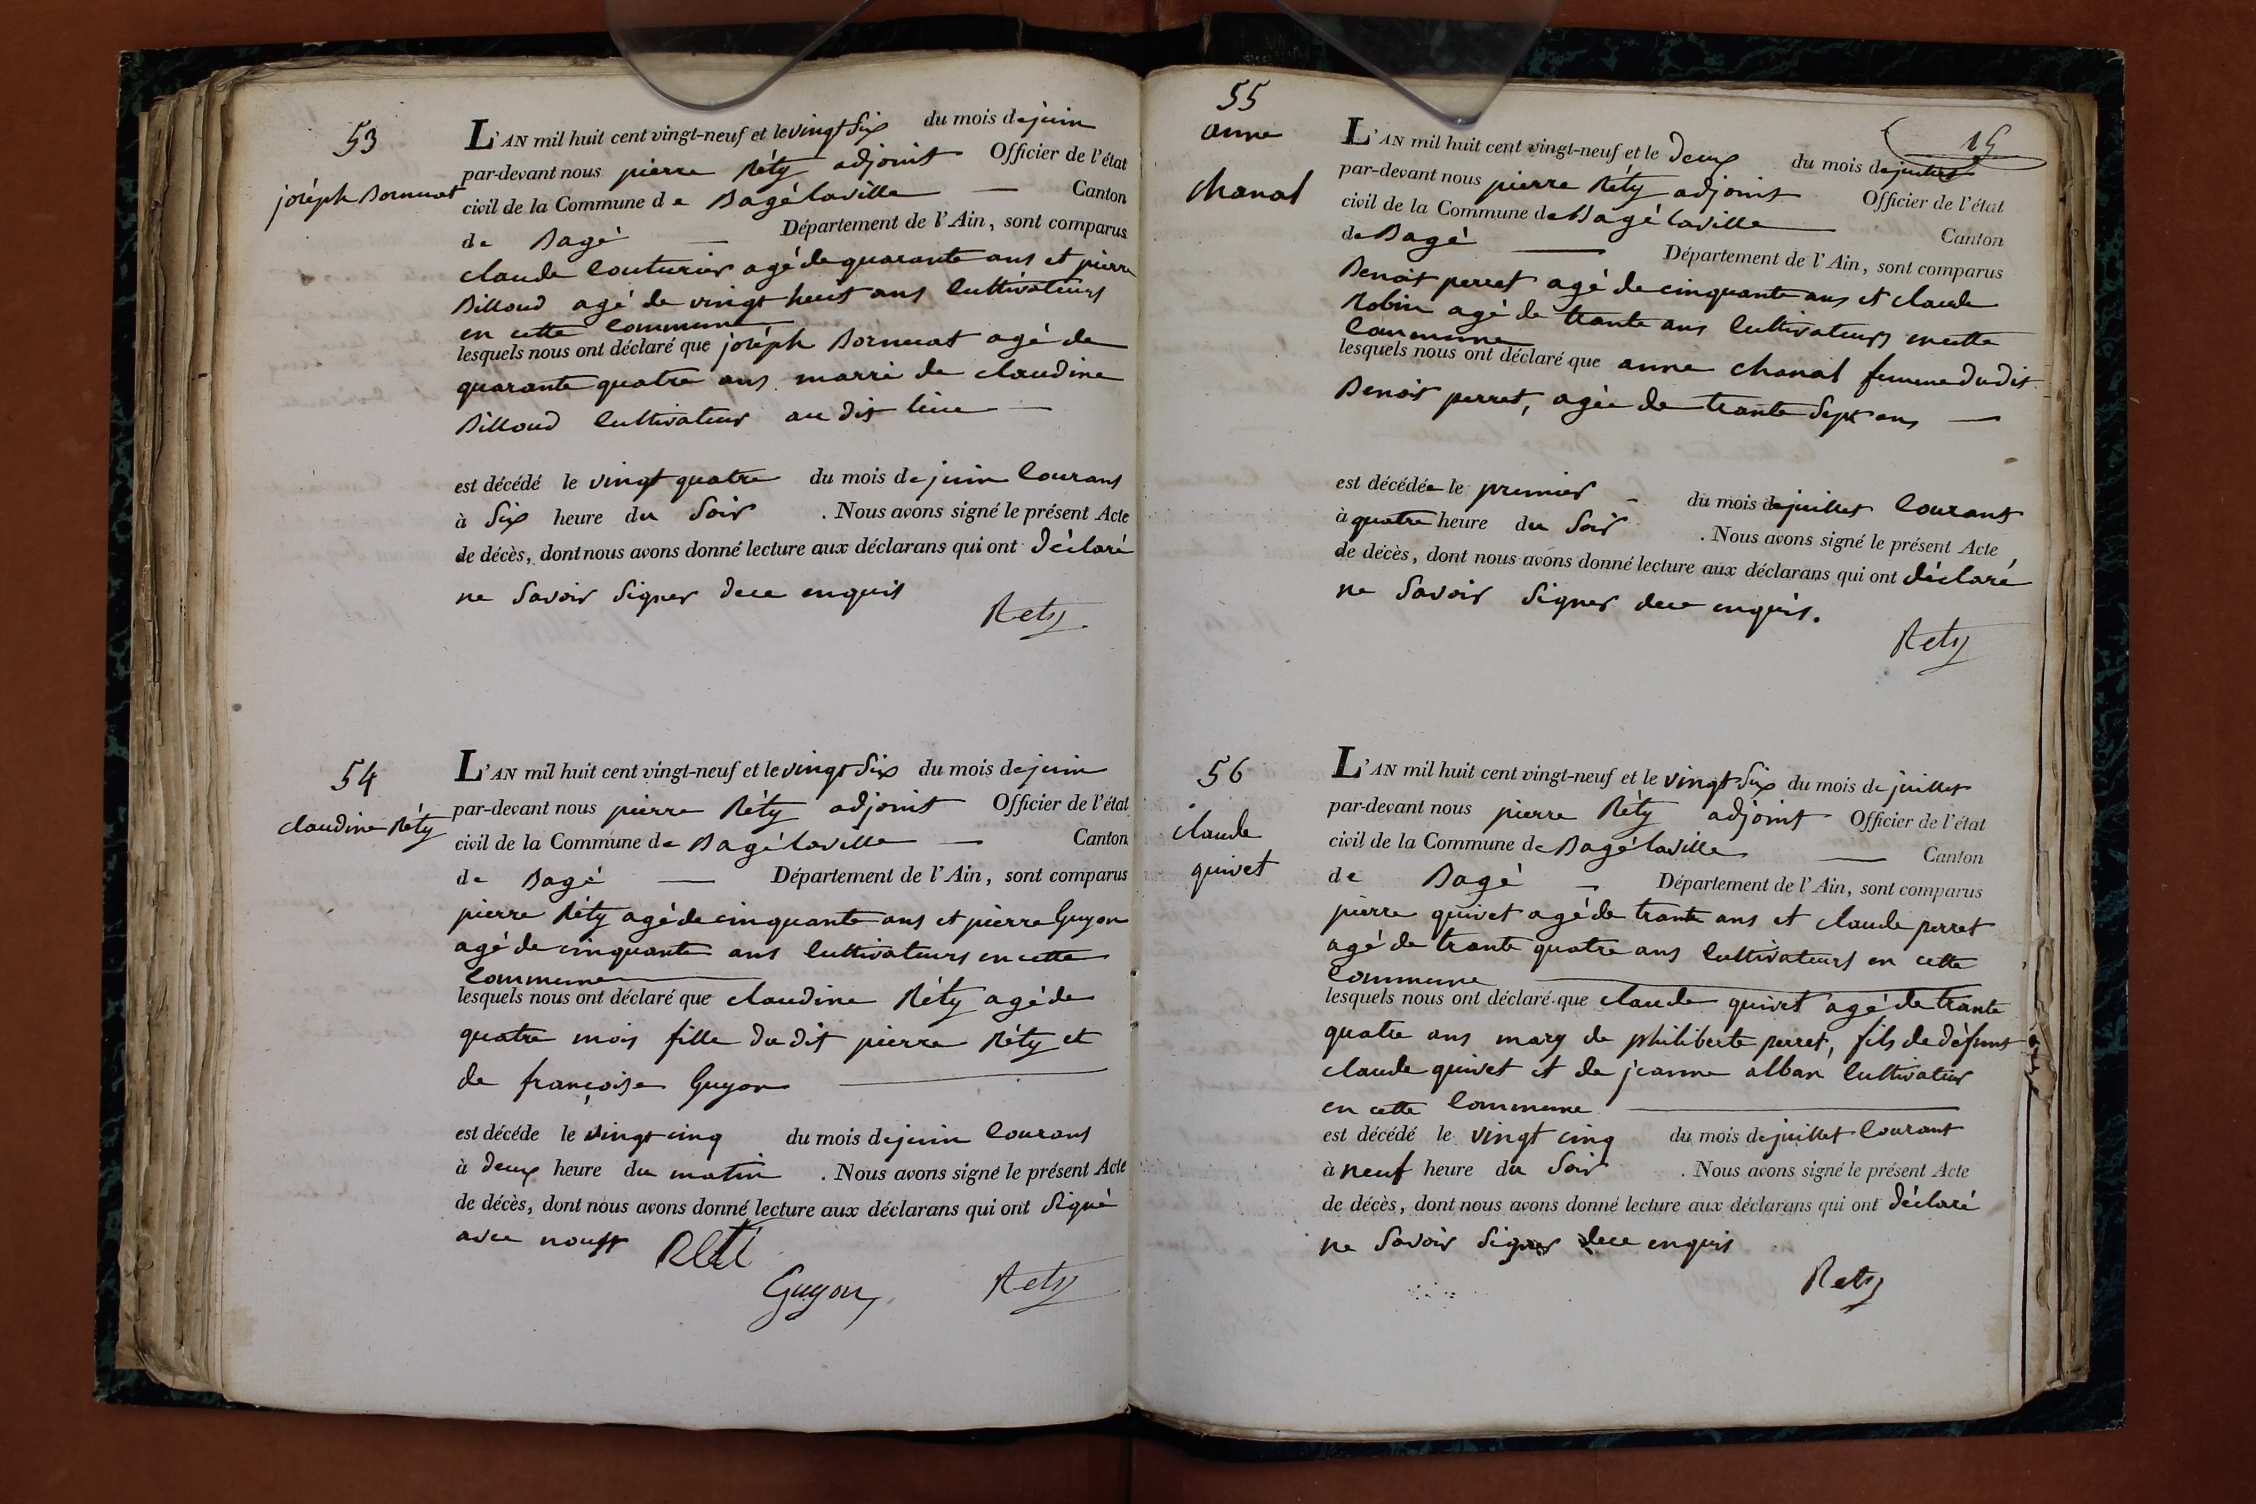 53
joséph Bornuat
L'AN mil huit cent vingt-neuf et le vingt six du mois de juin
par-devant nous pierre Réty adjoint Officier de l'état
civil de la Commune de Bagé laville — Canton
de Bagé — Département de l'Ain, sont comparus
claude Couturier agé de quarante ans et pierre
Billoud agé de vingt huit ans Cultivateurs
en cette Commune
lesquels nous ont déclaré que joséph Bornuat agé de
quarante quatre ans marri de claudine
Billoud Cultivateur au dit lieu —
est décédé le vingt quatre du mois de juin Courant
à Six heure du Soir . Nous avons signé le présent Acte
de décès, dont nous avons donné lecture aux déclarans qui ont déclaré
ne Savoir Signer de ce enquis
Rety
54
claudine Réty
L'AN mil huit cent vingt-neuf et le vingt Six du mois de juin
par-devant nous pierre Réty adjoint Officier de l'état
civil de la Commune de Bagé laville — Canton
de Bagé — Département de l'Ain, sont comparus
pierre Réty agé de cinquante ans et pierre Guyon
agé de cinquante ans Cultivateurs en cette
Commune
lesquels nous ont déclaré que claudine Réty agé de
quatre mois fille du dit pierre Réty et
de françoise Guyon
est décéde le vingt cinq du mois de juin Courant
à deux heure du matin . Nous avons signé le présent Acte
de décès, dont nous avons donné lecture aux déclarans qui ont Signé
avec nous
Guyon Rety
15
55
anne
chanal
L'AN mil huit cent vingt-neuf et le deux du mois de juillet
par-devant nous pierre Réty adjoint Officier de l'état
civil de la Commune de Bagé laville — Canton
de Bagé — Département de l'Ain, sont comparus
Benoit perret agé de cinquante ans et claude
Robin agé de trante ans Cultivateurs en cette
Commune
lesquels nous ont déclaré que anne chanal femme du dit
Benoit perret, agée de trante Sept ans —
est décédée le premier - du mois de juillet Courant
à quatre heure du Soir . Nous avons signé le présent Acte
de décès, dont nous avons donné lecture aux déclarans qui ont déclaré
ne Savoir Signer de ce enquis.
Rety
56
claude
quivet
L'AN mil huit cent vingt-neuf et le vingt Six du mois de juillet
par-devant nous pierre Réty adjoint Officier de l'état
civil de la Commune de Bagé laville — Canton
de Bagé — Département de l'Ain, sont comparus
pierre quivet agé de trante ans et claude perret
agé de trante quatre ans Cultivateurs en cette
Commune
lesquels nous ont déclaré que claude quivet agé de trante
quatre ans mary de philiberte perret, fils de défunt
claude quivet et de jeanne alban Cultivateur
en cette Commune
est décédé le vingt cinq du mois de juillet Courant
à neuf heure du Soir . Nous avons signé le présent Acte
de décès, dont nous avons donné lecture aux déclarans qui ont déclaré
ne Savoir Signer de ce enquis
Rety